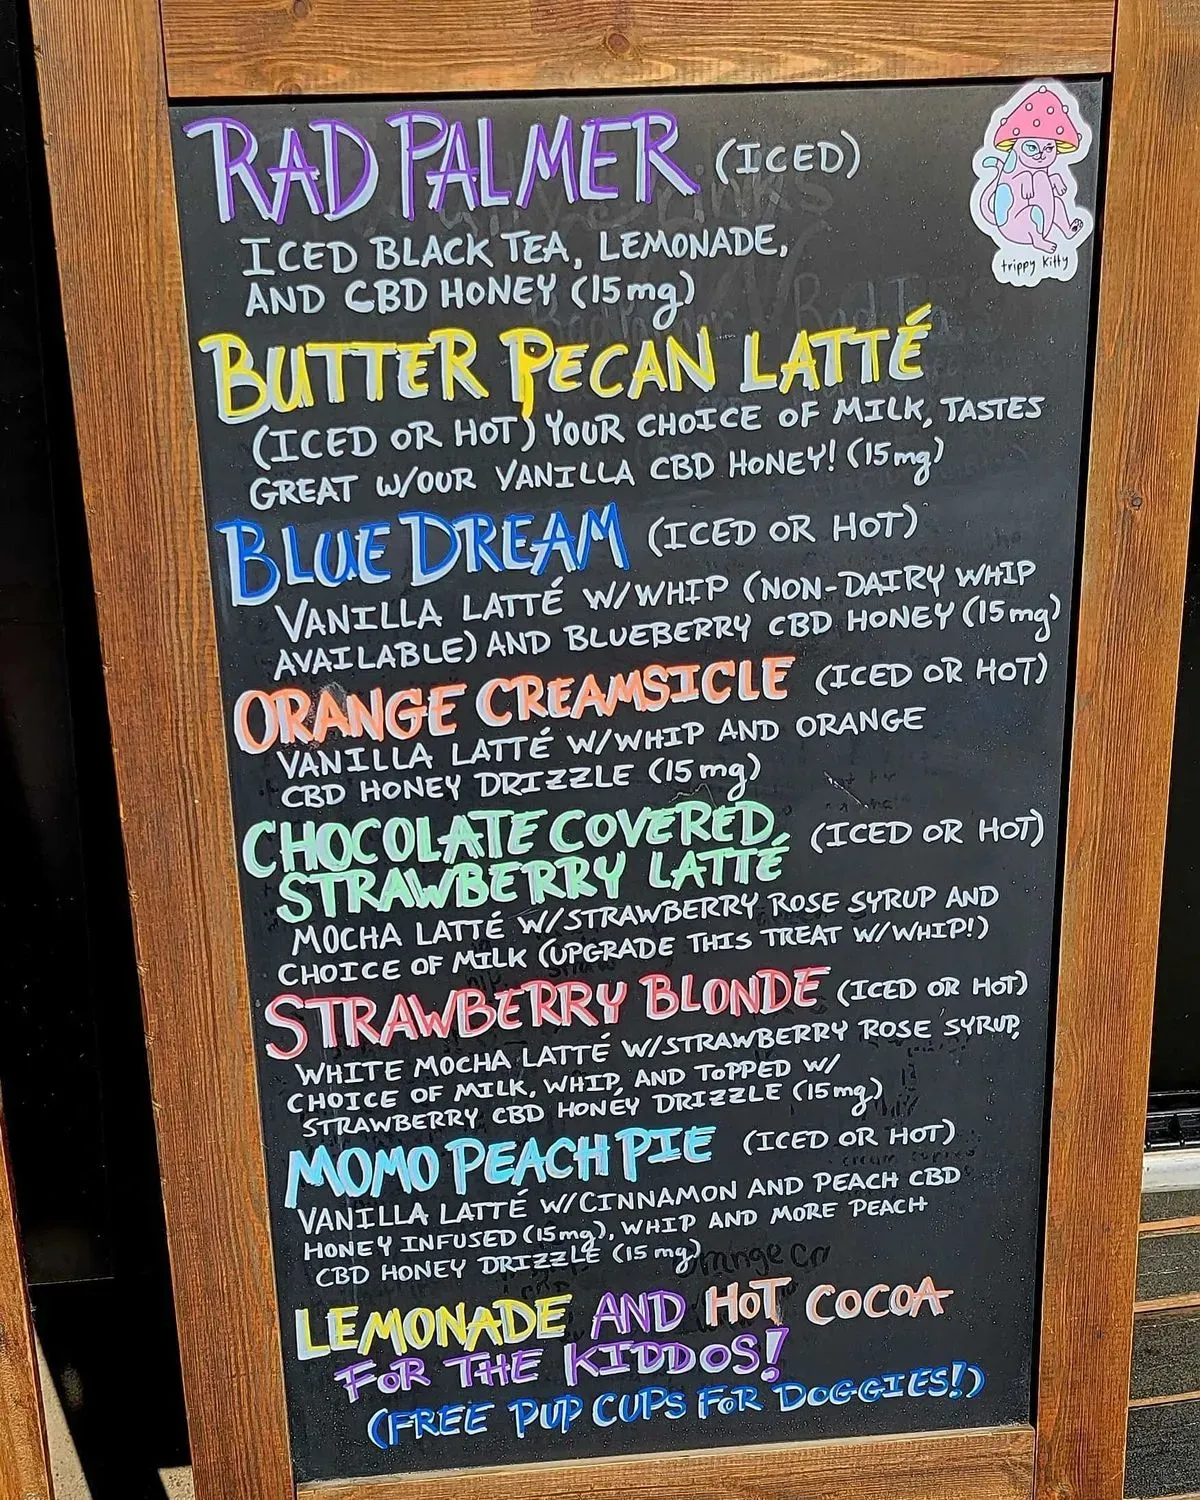 RAD PALMER (ICED)
trippy kitty
ICED BLACK TEA, LEMONADE,
AND CBD HONEY (15mg)
BUTTER PECAN LATTÉ
(ICED OR HOT) YOUR CHOICE OF MILK, TASTES
GREAT W/OUR VANILLA CBD HONEY! (15mg)
BLUE DREAM (ICED OR HOT)
VANILLA LATTÉ W/WHIP (NON-DAIRY WHIP
AVAILABLE) AND BLUEBERRY CBD HONEY (15mg)
ORANGE CREAMSICLE (ICED OR HOT)
VANILLA LATTÉ W/WHIP AND ORANGE
CBD HONEY DRIZZLE (15mg)
CHOCOLATE COVERED (ICED OR HOT)
STRAWBERRY LATTÉ
MOCHA LATTÉ W/STRAWBERRY ROSE SYRUP AND
CHOICE OF MILK (UPGRADE THIS TREAT W/WHIP!)
STRAWBERRY BLONDE (ICED OR HOT)
WHITE MOCHA LATTÉ W/STRAWBERRY ROSE SYRUP,
CHOICE OF MILK, WHIP, AND TOPPED W/
STRAWBERRY CBD HONEY DRIZZLE (15mg)
MOMO PEACH PIE (ICED OR HOT)
VANILLA LATTÉ W/CINNAMON AND PEACH CBD
HONEY INFUSED (15mg), WHIP AND MORE PEACH
CBD HONEY DRIZZLE (15mg)
LEMONADE AND HOT COCOA
FOR THE KIDDOS!
(FREE PUP CUPS FOR DOGGIES!)